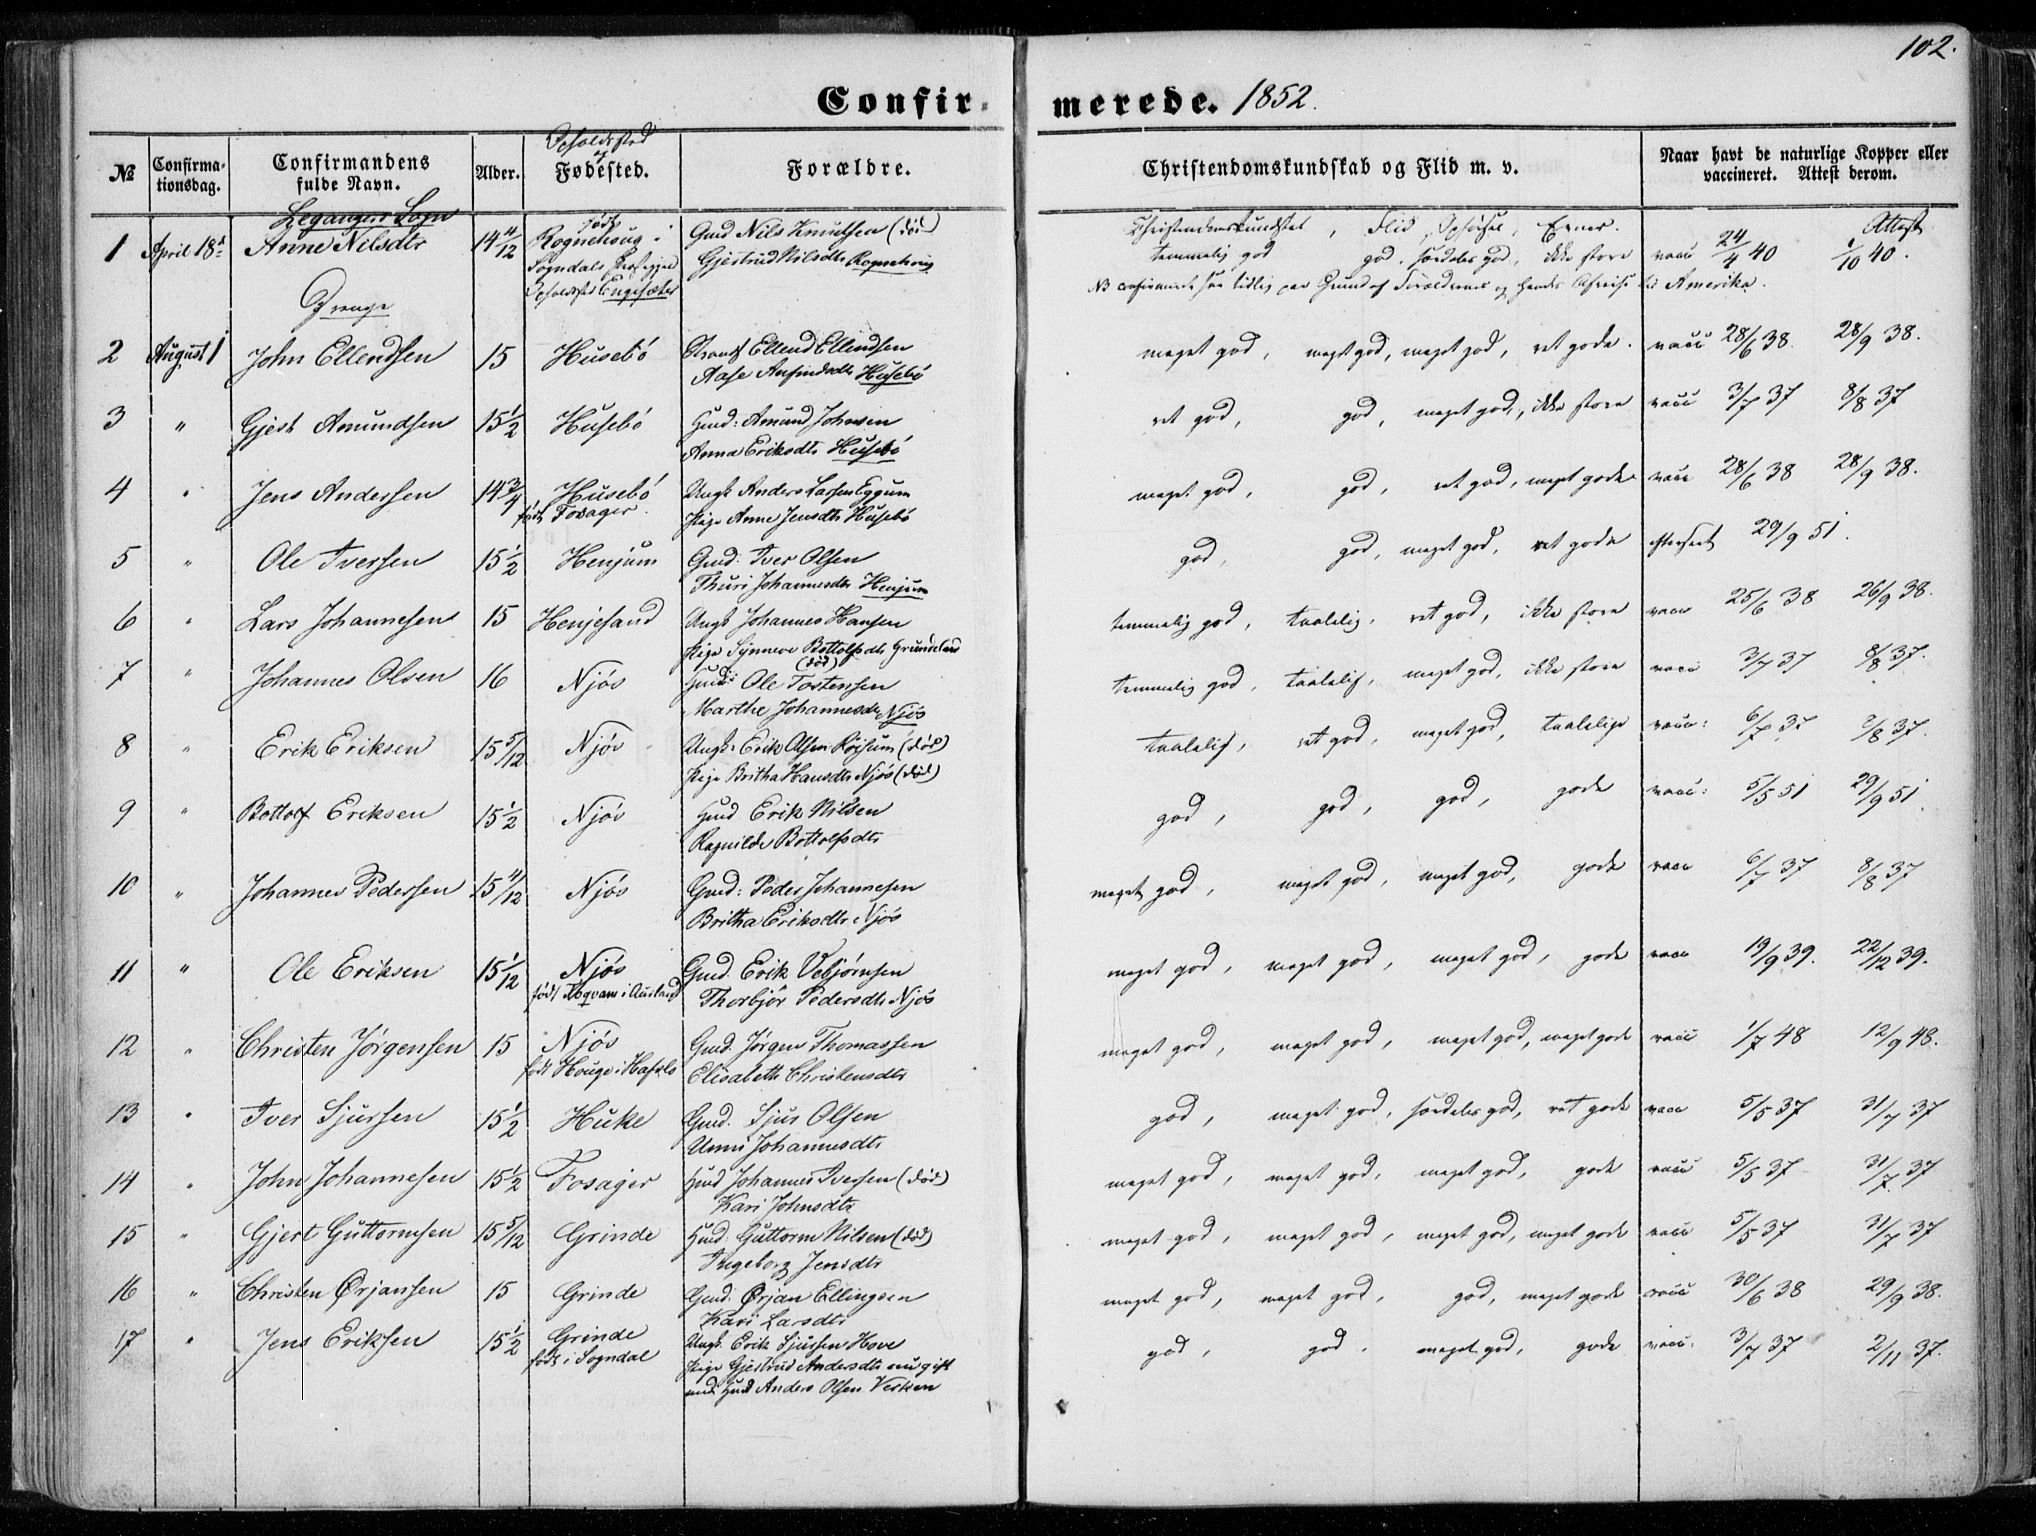 102.
Confirmerede. 1852.
№ Confirmationsdag. Confirmandens fulde Navn. Alder. Opholdssted og Fødested. Forældre. Christendomskundskab og Flid m. v. Naar havt de naturlige Kopper eller vaccineret. Attest derom.
Leganger Sogn
Christendomskundskab, Flid, Opførsel, Evner. Attest
1 April 18de Anne Nilsdtr 14 4/12 født Rognehoug i Gmd Nils Knutsen (død) temmelig god god, særdeles god, ikke store vacc 24/4 40 1/10 40.
Sogndals Præstegjeld Gjertrud Nilsdtr Rognehoug
Opholdssted Engesæter NB confirmeret saa tidlig paa Grund af Forældrenes og hendes Afreise til Amerika.
Drenge
2 August 1 John Ellendsen 15 Husebø Strands Ellend Ellendsen meget god, meget god, meget god, ret gode. vacc 28/6 38. 28/9 38.
Aase Anfindsdtr Husebø
3 " Gjest Amundsen 15 1/2 Husebø Hmd: Amund Johnsen ret god, god, meget god, ikke store vacc 3/7 37 8/8 37
Anna Eriksdtr Husebø
4 " Jens Andersen 14 3/4 Husebø Ungk Anders Larsen Eggum meget god, god, ret god, meget gode vacc 28/6 38 28/9 38.
født Fosager. Pige Anne Jensdtr Husebø
5 " Ole Iversen 15 1/2 Henjum Gmd: Iver Olsen god, god, meget god, ret gode efterseet 29/9 51.
Thuri Johannesdtr Henjum
6 " Lars Johannesen 15 Henjesand Ungk Johannes Hansen temmelig god, taalelig, ret god, ikke store vacc 25/6 38 26/9 38.
Pige Synneve Bottolfsdtr Grindeland
7 " Johannes Olsen 16 Njøs Hmd: Ole Tostensen (død) temmelig god, taalelig, meget god, ikke store vacc 3/7 37 8/8 37.
Marthe Johannesdtr Njøs
8 " Erik Eriksen 15 5/12 Njøs Ungk: Erik Olsen Röisum (død) taalelig, ret god, meget god, taalelige vacc: 6/7 37 8/8 37.
Pige Britha Hansdtr Njøs (død)
9 " Bottolf Eriksen 15 1/2 Njøs Hmd Erik Nilsen god, god, god, gode vacc: 5/5 51 29/9 51.
Ragnilde Bottolfsdtr
10 " Johannes Pedersen 15 11/12 Njøs Gmd: Peder Johannesen meget god, meget god, meget god, gode vacc 6/7 37 8/8 37
Britha Eriksdtr Njøs
11 " Ole Eriksen 15 1/12 Njøs Gmd. Erik Vebjørnsen meget god, meget god, meget god, gode vacc 19/9 39. 22/12 39.
født i Aurland Thorbjør Pedersdtr Njøs
12 " Christen Jørgensen 15 Njøs Gmd. Jørgen Thomassen meget god, meget god, meget god, meget gode vacc 1/7 48 12/9 48.
født Houge i Hafslo Elisabeth Christensdtr
13 " Iver Sjursen 15 1/2 Huke Gmd. Sjur Olsen god, meget god, særdeles god, ret gode vacc 5/5 37 31/7 37
Unni Johannesdtr
14 " John Johannesen 15 1/2 Fosager Hmd Johannes Iversen (død) meget god, meget god, meget god, gode vacc 5/5 37 31/7 37
Kari Johnsdtr
15 " Gjert Guttormsen 15 5/12 Grinde Hmd. Guttorm Nilsen (død) meget god, meget god, meget god, meget gode vacc 5/5 37 31/7 37
Ingeborg Jensdtr
16 " Christen Ørjansen 15 Grinde Gmd. Ørjan Ellingsen meget god, meget god, god, meget gode vacc 30/6 38 29/9 38.
Kari Larsdtr
17 " Jens Eriksen 15 1/2 Grinde Ungk. Erik Sjursen Hove god, god, meget god, gode vacc: 3/7 37 2/11 37.
født i Sogndal Pige Gjertrud Andersdtr nu gift
med Hmd Anders Olsen Verken